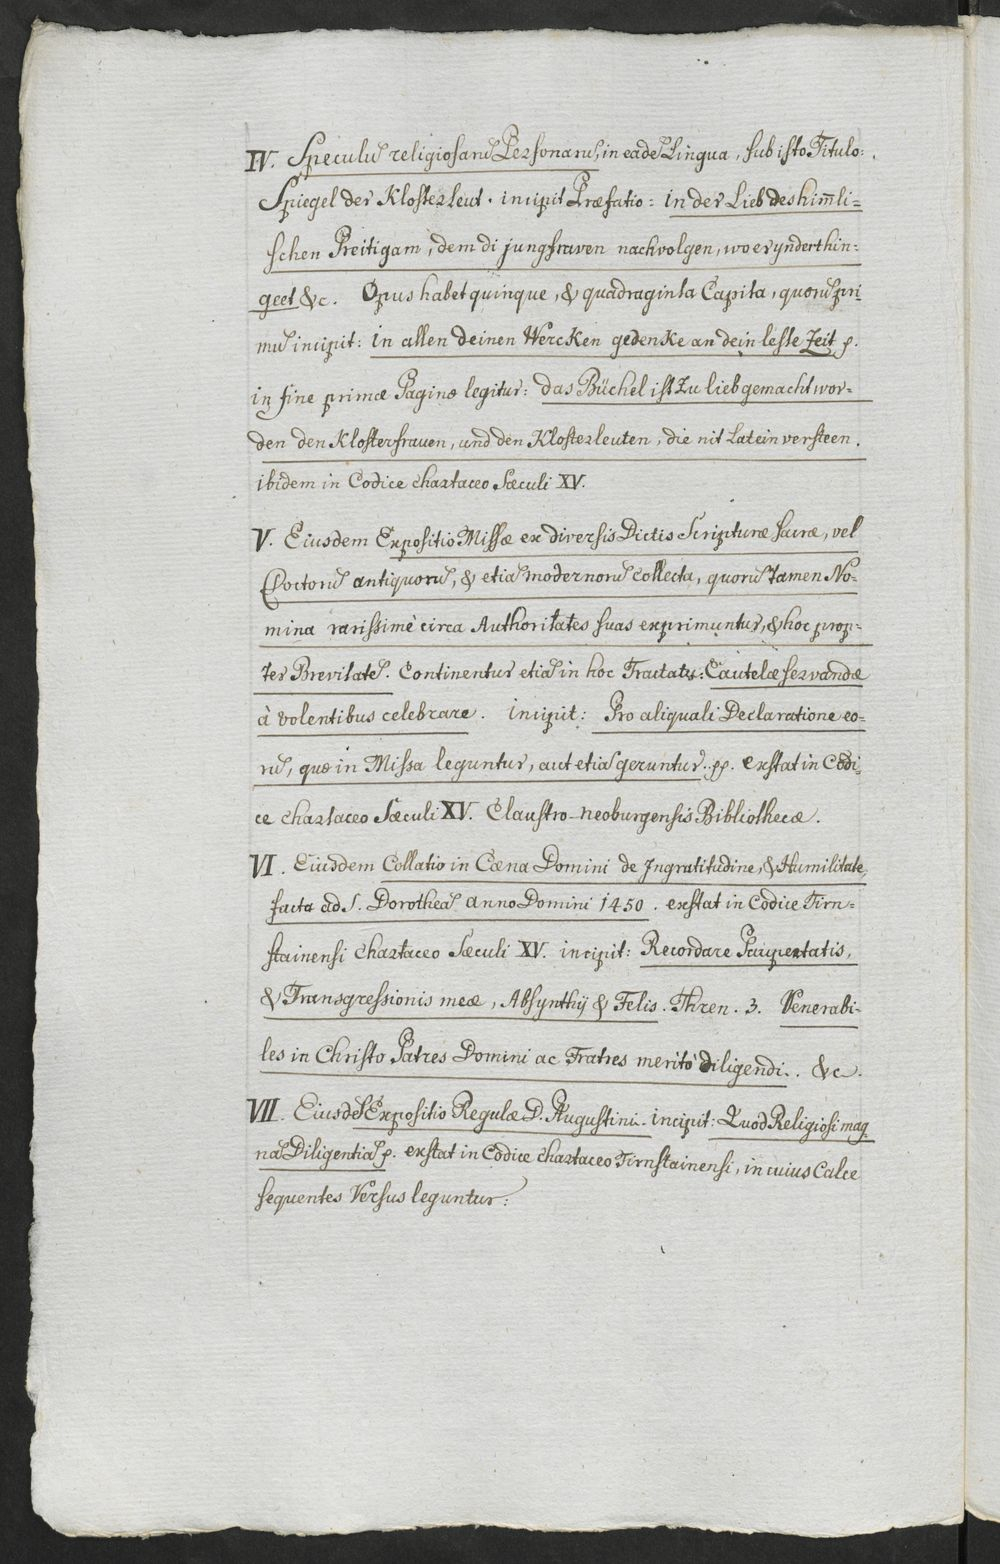 IV. Speculũ religiosarũ Personarũ, in eadẽ Lingua, sub isto Titulo:
Spiegel der Klosterleut. incipit Præfatio: in der Lieb des him̄li=
schen Preitigam, dem di jungfraven nachvolgen, wo er ynderthin=
geet &c. Opus habet quinque, & quadraginta Capita, quorũ pri
mũ incipit: in allen deinen Wercken gedenke an dein leste Zeit p.
in fine primæ Paginæ legitur: das Büchel ist Zu lieb gemacht wor=
den den Klosterfrauen, und den Klosterleuten, die nit Latein versteen.
ibidem in Codice chartaceo Sæculi XV.
V. Eiusdem Expositio Missæ ex diversis Dictis Scripturæ sacræ, vel
Doctorũ antiquorũ, & etiã modernorũ collecta, quorũ tamen No=
mina rarissimè circa Authoritates suas exprimuntur, & hoc prop=
ter Brevitatẽ. Continentur etiã in hoc Tractatu: Cautelæ servandæ
à volentibus celebrare. incipit: Pro aliquali Declaratione eo=
rũ, quæ in Missa leguntur, aut etiã geruntur. pp. exstat in Codi=
ce chartaceo Sæculi XV. Claustro-neoburgensis Bibliothecæ.
VI. Eiusdem Collatio in Cæna Domini de Ingratitudine, & Humilitate,
facta ad S. Dorotheã Anno Domini 1450. exstat in Codice Tirn=
stainensi chartaceo Sæculi XV. incipit: Recordare Paupertatis,
& Transgressionis meæ, Absynthij & Felis. Thren. 3. Venerabi=
les in Christo Patres Domini ac Fratres meritò diligendi. &c.
VII. Eiusdẽ Expositio Regulæ D. Augustini. incipit: Quod Religiosi mag
nã Diligentiã p. exstat in Codice chartaceo Tirnstainensi, in cuius Calce
sequentes Versus leguntur: